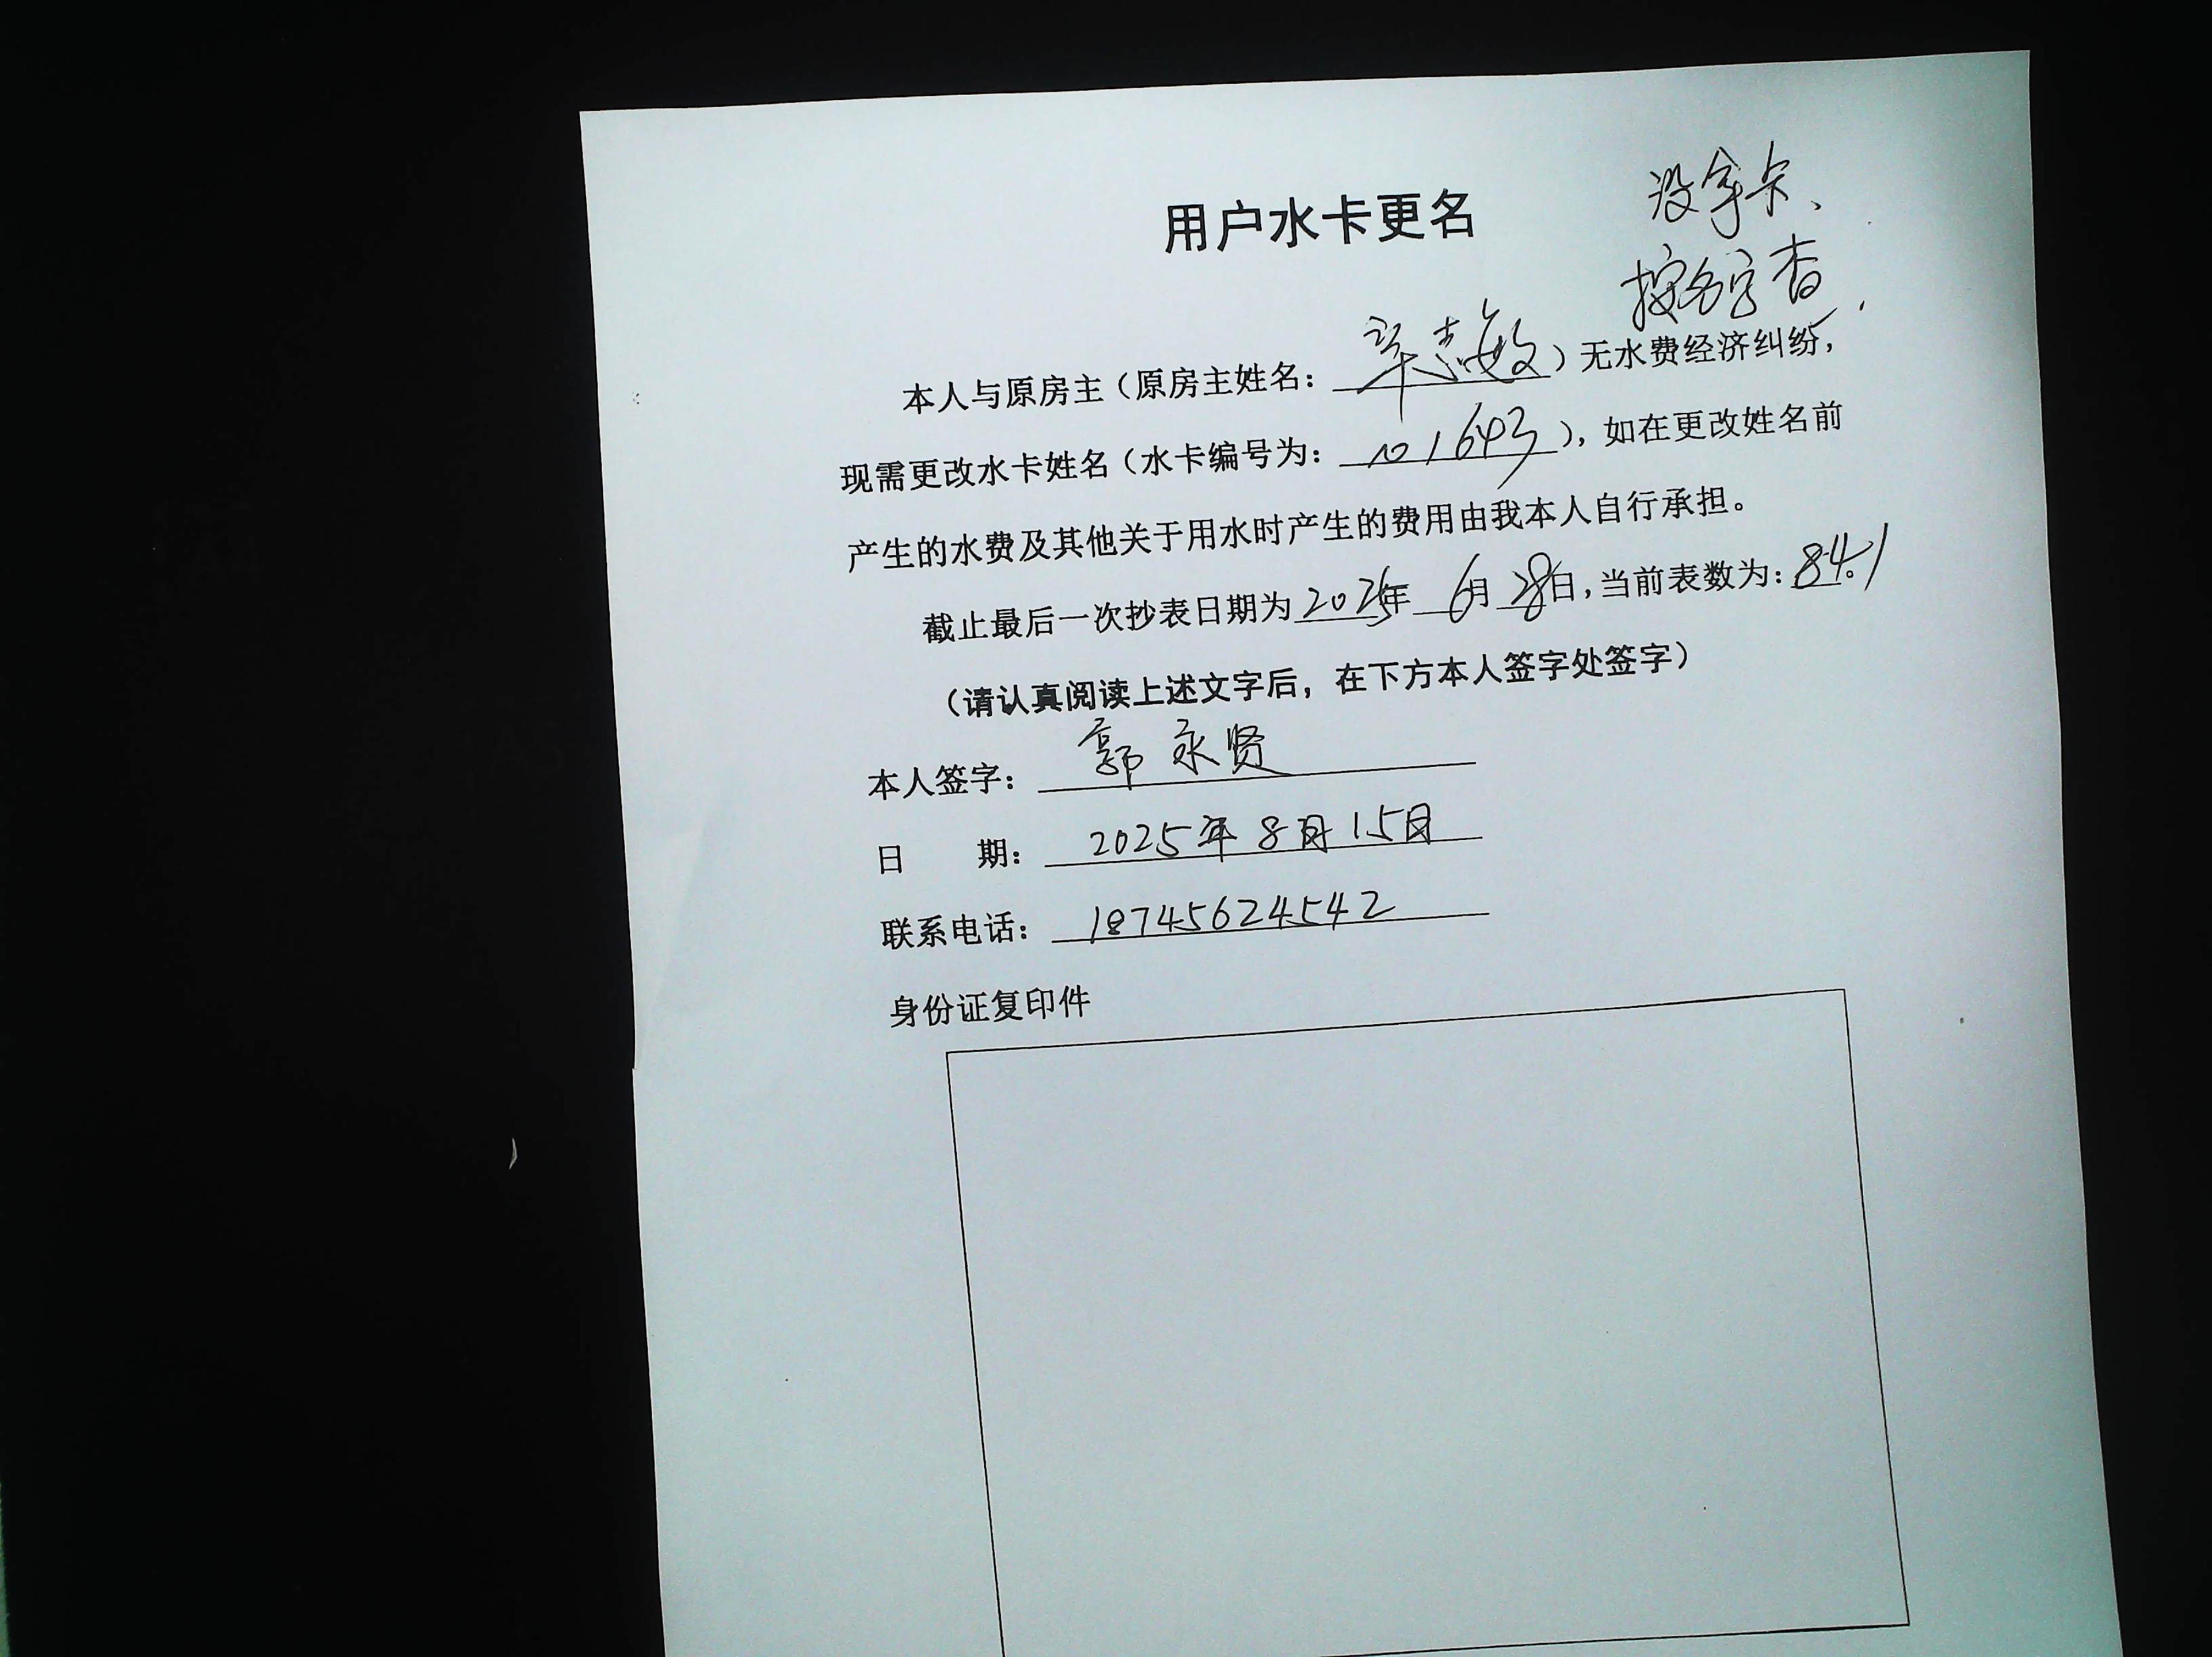 用户水卡更名
没拿卡、
按名字查.
本人与原房主（原房主姓名：辛志敏）无水费经济纠纷，
现需更改水卡姓名（水卡编号为：101643），如在更改姓名前
产生的水费及其他关于用水时产生的费用由我本人自行承担。
截止最后一次抄表日期为2025年 6月28日，当前表数为：84.1
（请认真阅读上述文字后，在下方本人签字处签字）
本人签字：郭永贤
日 期：2025年8月15日
联系电话：18745624542
身份证复印件